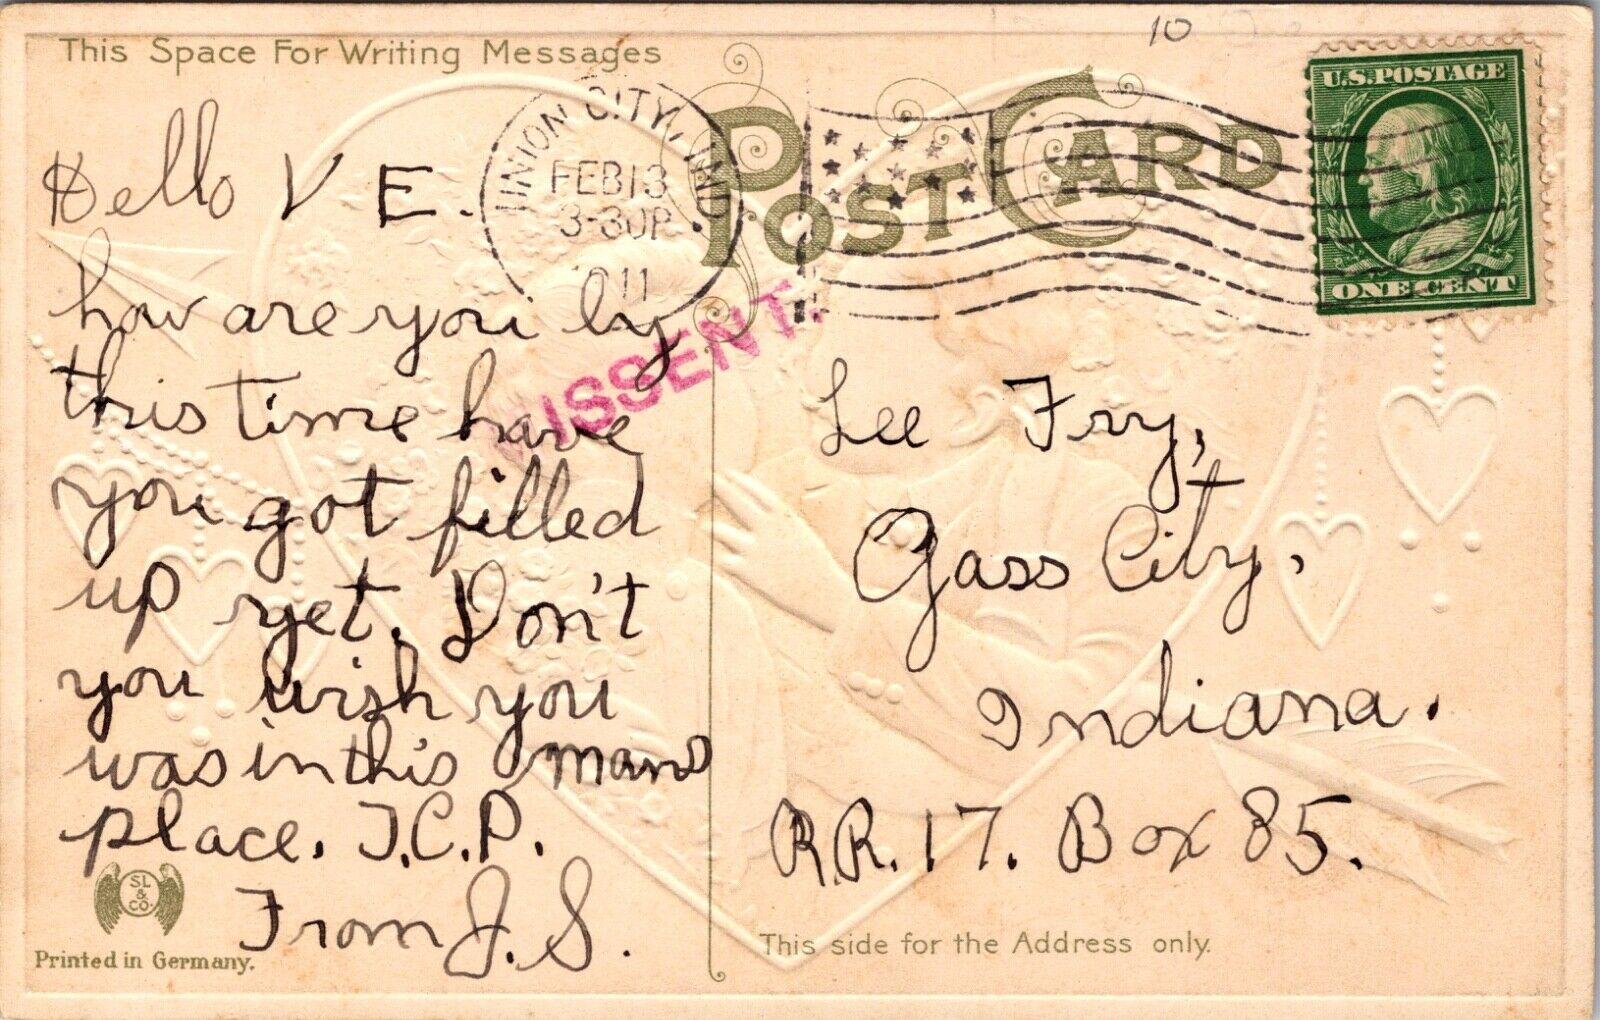 10
This Space For Writing Messages
POST CARD
U.S. POSTAGE
ONE CENT
UNION CITY, IND.
FEB 13
3-30P
1911
MISSENT.
Hello V E.
how are you by
this time have
you got filled
up yet. Don't
you wish you
was in this mans
place. I.C.P.
From J.S.
Lee Fry,
Gass City,
Indiana.
R.R. 17. Box 85.
SL
&
CO.
Printed in Germany.
This side for the Address only.